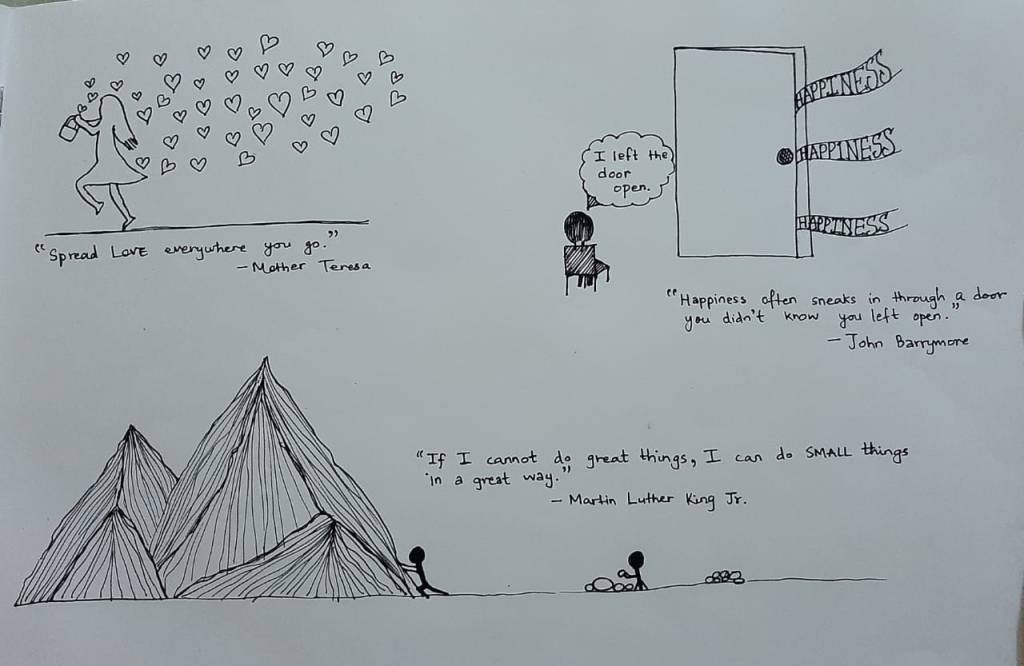 "Spread LOVE everywhere you go."
- Mother Teresa
I left the
door
open.
HAPPINESS
HAPPINESS
HAPPINESS
"Happiness often sneaks in through a door
you didn't know you left open."
- John Barrymore
"If I cannot do great things, I can do SMALL things
in a great way."
- Martin Luther King Jr.